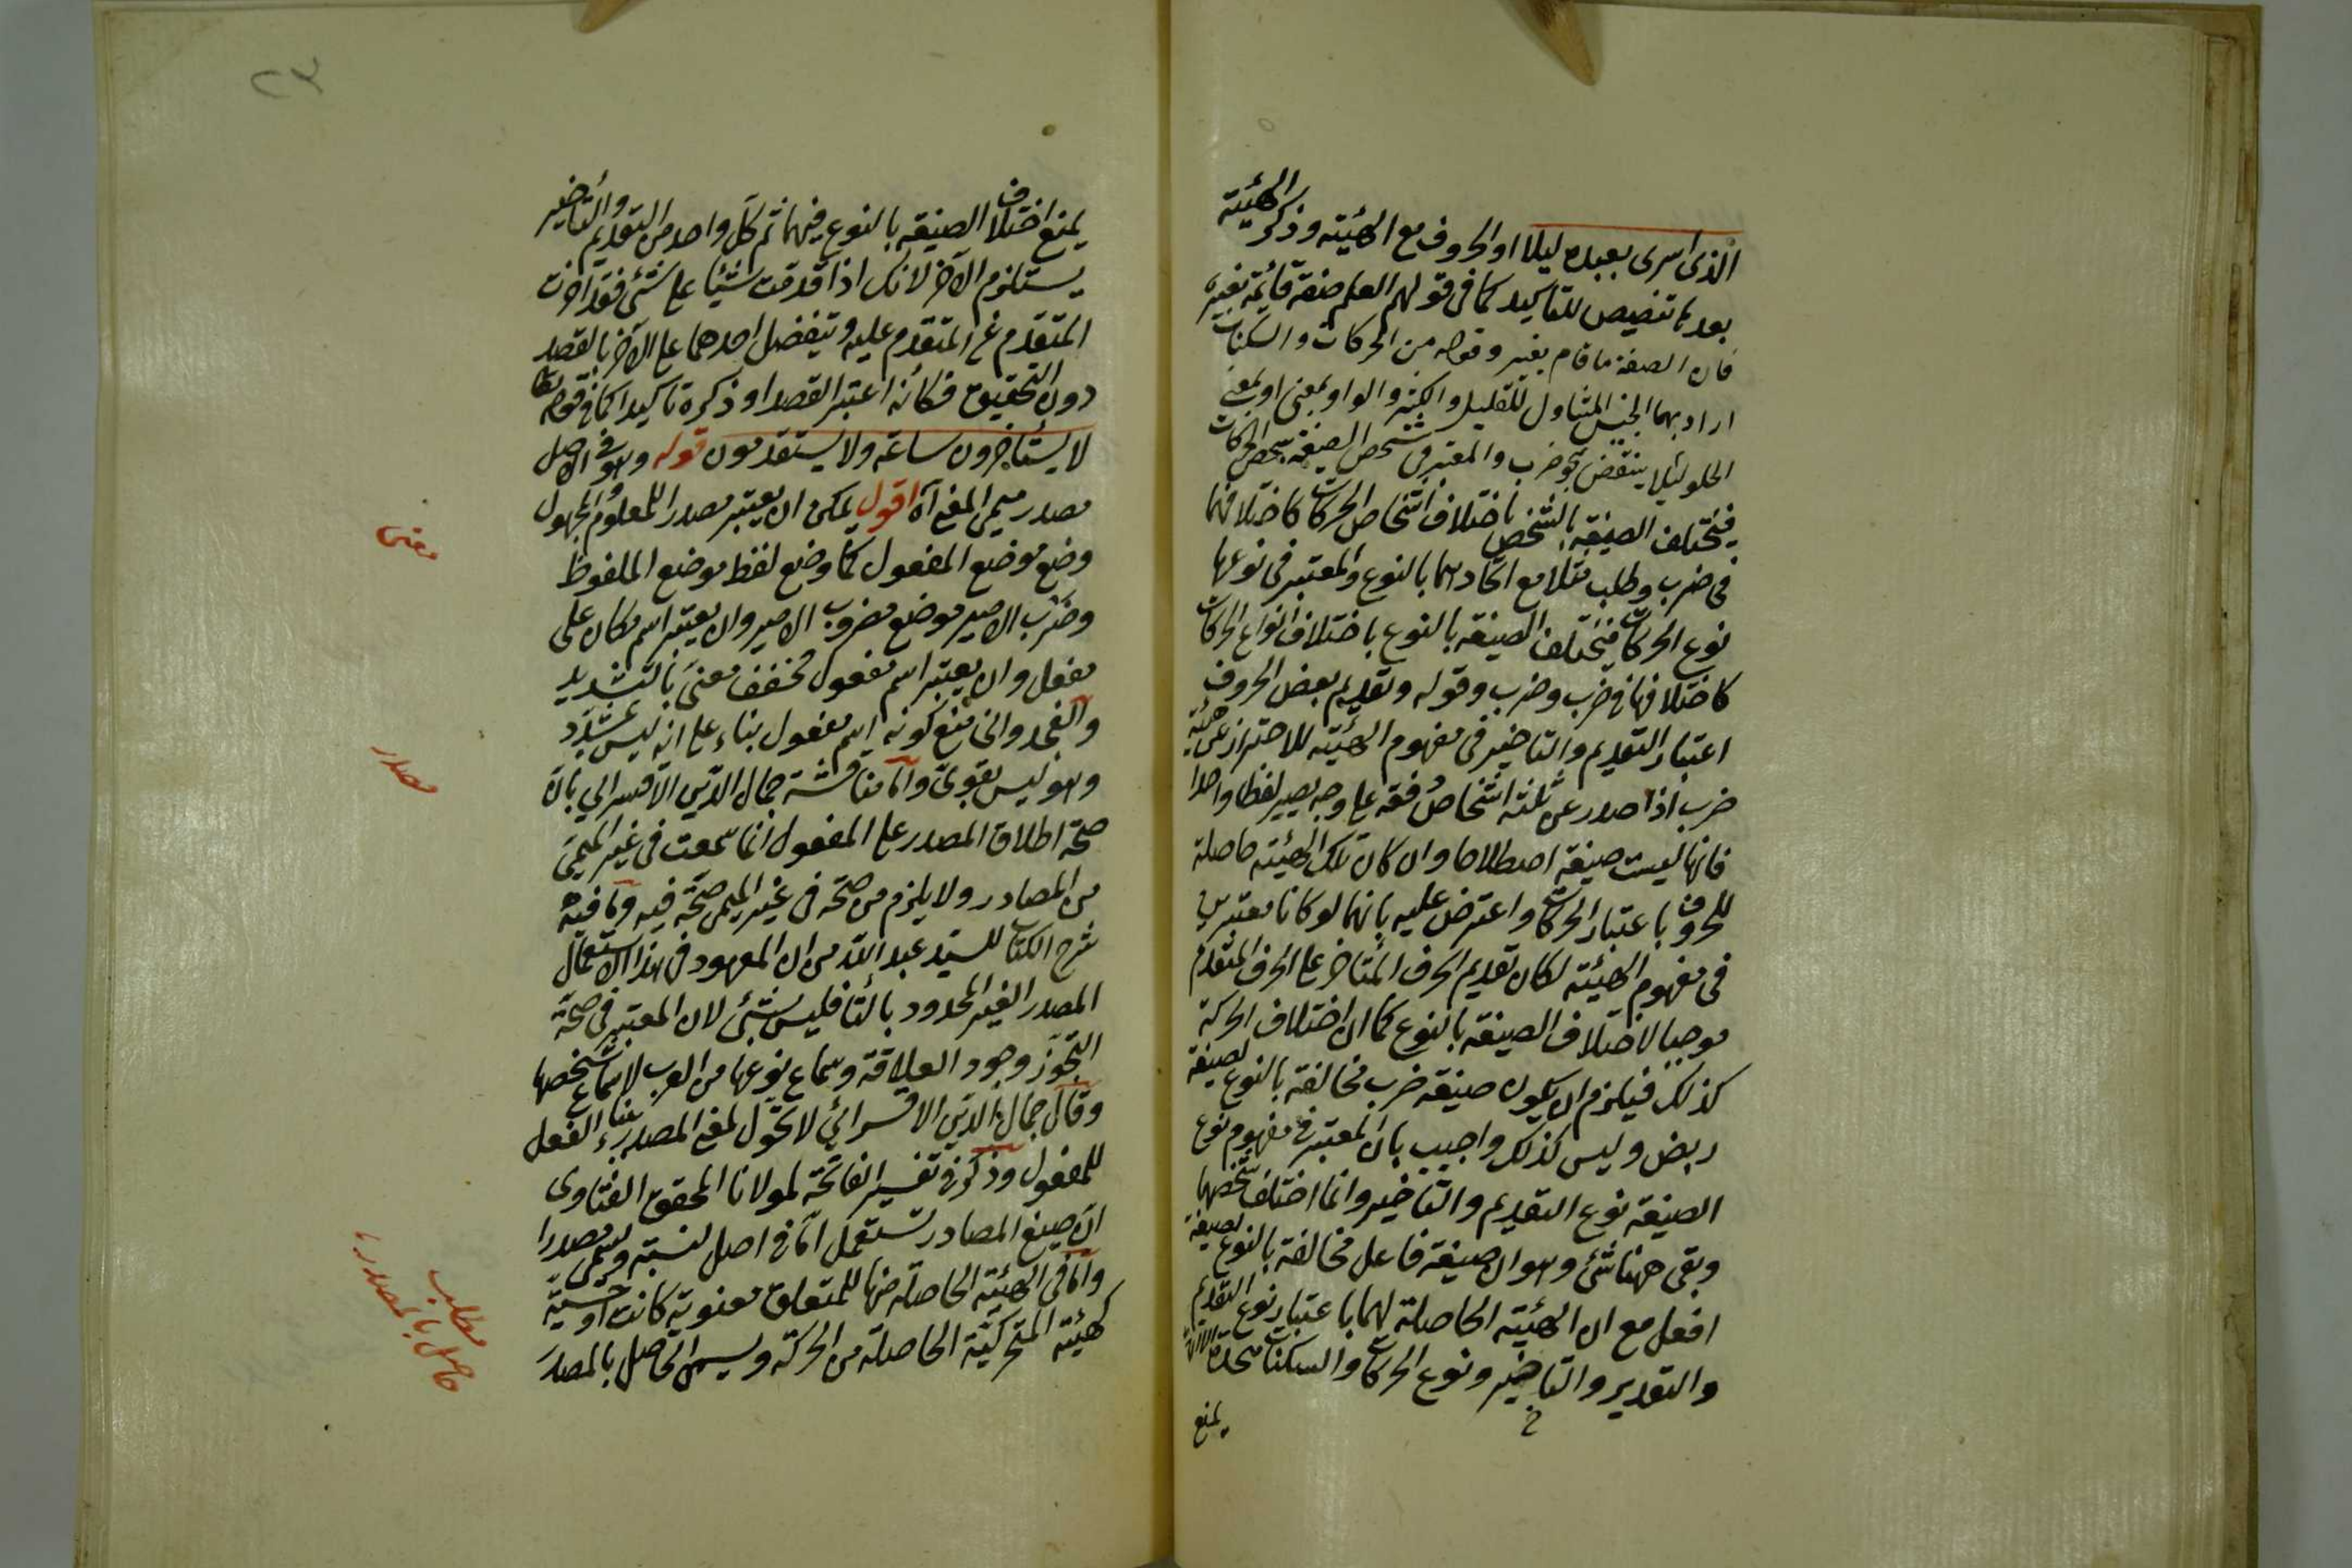 الذى اسرى بعبده ليلا او الحروف مع الهيئة وذكر الهيئة
بعدها تنصيص للتاكيد كما فى قولهم العلم صفة قائمة بغيره
فان الصفة ما قام بغيره وقوله من الحركات والسكنات
اراد بهما الجنس المتناول للقليل والكثير والواو بمعنى او بمعنى
الخلو لئلا ينتقض بنحو ضرب والمعتبر فى شخص الصيغة شخص الحركات
فيختلف الصيغة بالشخص باختلاف اشخاص الحركات كاختلافها
فى ضرب وطلب مثلا مع اتحادهما بالنوع والمعتبر فى نوعها
نوع الحركات فيختلف الصيغة بالنوع باختلاف انواع الحركات
كاختلافها فى ضرب وضرب وقوله وتقديم بعض الحروف
اعتبار التقديم والتاخير فى مفهوم الهيئة للاحتراز عن هيئة
ضرب اذا صدر عن ثلثة اشخاص دفعة على وجه يصير لفظا واحدا
فانها ليست صيغة اصطلاحا وان كان تلك الهيئة حاصلة
للحروف باعتبار الحركات واعترض عليه بانهما لو كانا معتبرين
فى مفهوم الهيئة لكان تقديم الحرف المتأخر على الحرف المتقدم
موجبا لاختلاف الصيغة بالنوع كما ان اختلاف الحركة
كذلك فيلزم ان يكون صيغة ضرب مخالفة بالنوع لصيغة
ربض وليس كذلك واجيب بان المعتبر فى مفهوم نوع
الصيغة نوع التقديم والتاخير وانما اختلف شخصهما
وبقى ههنا شئ وهو ان صيغة فاعل مخالفة بالنوع لصيغة
افعل مع ان الهيئة الحاصلة لهما باعتبار نوع التقديم
والتقدير والتاخير ونوع الحركات والسكنات متحدة الا ان
يمنع
٢٣
يمنع اختلاف الصيغة بالنوع فيهما ثم كل واحد من التقديم والتأخير
يستلزم الآخر لانك اذا قدمت شيئا على شئ فقد اخرت
المتقدم عن المتقدم عليه وينفصل احدهما عن الآخر بالقصد
دون التحقيق فكانه اعتبر القصد او ذكره تاكيدا كما فى قوله تعالى
لا يستأخرون ساعة ولا يستقدمون قوله وهو فى الاصل
مصدر ميمى المعنى آه اقول يمكن ان يعتبر مصدرا للمعلوم والمجهول
وضع موضع المفعول كما وضع لفظ موضع الملفوظ
وضرب الامير موضع مضروب الامير وان يعتبر اسم مكان على
مفعل وان يعتبر اسم مفعول مخفف معنى بالتشديد
والفجدوانى منع كونه اسم مفعول بناء على انه ليس بمشدد
وهو ليس بقوى واما مناقشة جمال الدين الاقسرايى بان
صحة اطلاق المصدر على المفعول انما سمعت فى غير الميمى
من المصادر ولا يلزم من صحة فى غير الميمى صحته فيه وما فيه
شرح الكتاب للسيد عبد الله من ان المعهود فى هذا الاستعمال
المصدر الغير المحدود بالتا فليس بشئ لان المعتبر فى صحة
التجوز وجود العلاقة وسماع نوعها من العرب لا سماع شخصها
وقال جمال الدين الاقسرائى لا تحول لمعنى المصدر بناء الفعل
للمفعول وذكر فى تفسير الفاتحة لمولانا المحقق الفنارى
ان صيغ المصادر تستعمل اما فى اصل النسبة ويسمى مصدرا
واما فى الهيئة الحاصلة منها للمتعلق معنوية كانت او حسية
كهيئة المتحركية الحاصلة من الحركة ويسمى الحاصل بالمصدر
معنى
مصدر
مطلب
حاصل بالمصدر